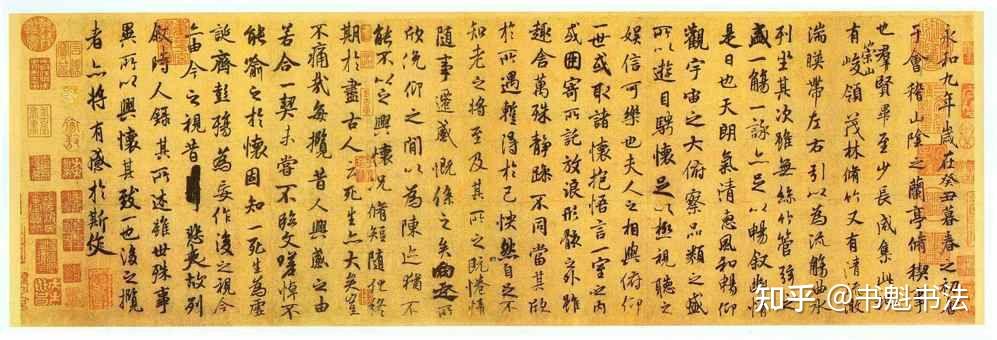 永和九年歲在癸丑暮春之初會
于會稽山陰之蘭亭脩稧事
也羣賢畢至少長咸集此地
有崇山峻領茂林脩竹又有清流激
湍暎帶左右引以為流觴曲水
列坐其次雖無絲竹管弦之
盛一觴一詠亦足以暢敘幽情
是日也天朗氣清惠風和暢仰
觀宇宙之大俯察品類之盛
所以遊目騁懷足以極視聽之
娛信可樂也夫人之相與俯仰
一世或取諸懷抱悟言一室之內
或因寄所託放浪形骸之外雖
趣舍萬殊靜躁不同當其欣
於所遇蹔得於己怏然自足不
知老之將至及其所之既惓情
隨事遷感慨係之矣向之所
欣俛仰之閒以為陳迹猶不
能不以之興懷況脩短隨化終
期於盡古人云死生亦大矣豈
不痛哉每攬昔人興感之由
若合一契未嘗不臨文嗟悼不
能喻之於懷固知一死生為虛
誕齊彭殤為妄作後之視今
亦由今之視昔悲夫故列
敘時人錄其所述雖世殊事
異所以興懷其致一也後之攬
者亦將有感於斯文
知乎 @书魁书法